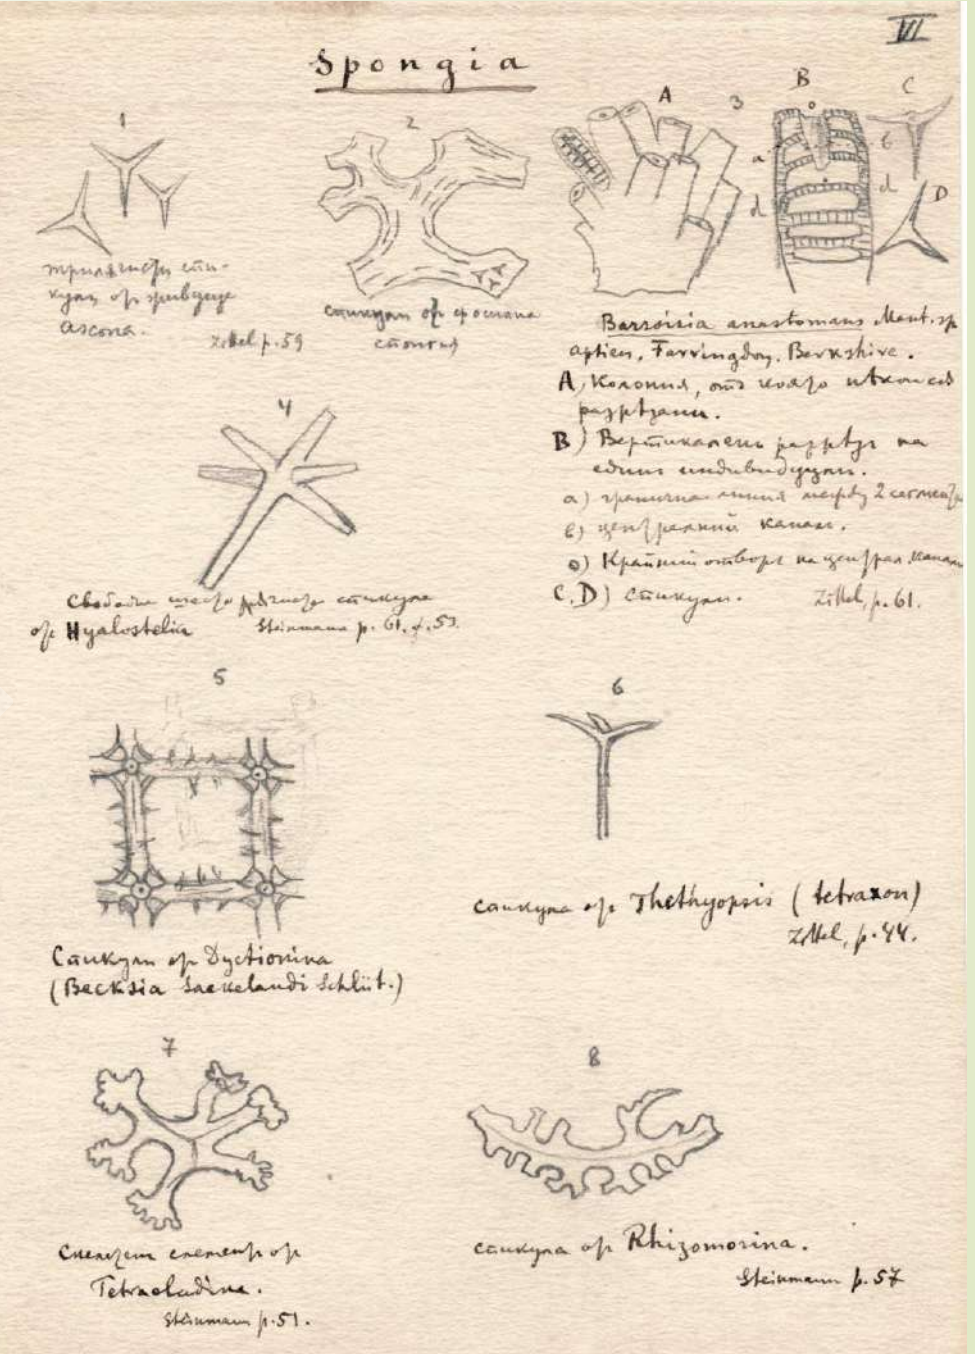 VI
Spongia
1
трилъчести спи-
кули от живущи
ascona.
Zittel p. 59
2
спикули от фосилна
спонгия
A 3 B C
o
a b
d d D
Barroisia anastomans Mant. sp
aptien, Farringdon, Berkshire.
A) Колония, от която някои са
разрязани.
B) Вертикаленъ разрѣзъ на
единъ индивидуум.
a) гранична линия между 2 сегмента
b) централний каналъ.
o) Крайний отворъ на централ. каналъ
C. D) спикули. Zittel, p. 61.
4
Свободна шесто лъчиста спикула
от Hyalostelia Steinmann p. 61. f. 53.
5
Спикули от Dyctionina
(Becksia Soekelandi Schlüt.)
6
спикула от Thethyopsis (tetraxon)
Zittel, p. 44.
7
Скелетни елементи от
Tetracladina.
Steinmann p. 51.
8
спикула от Rhizomorina.
Steinmann p. 57